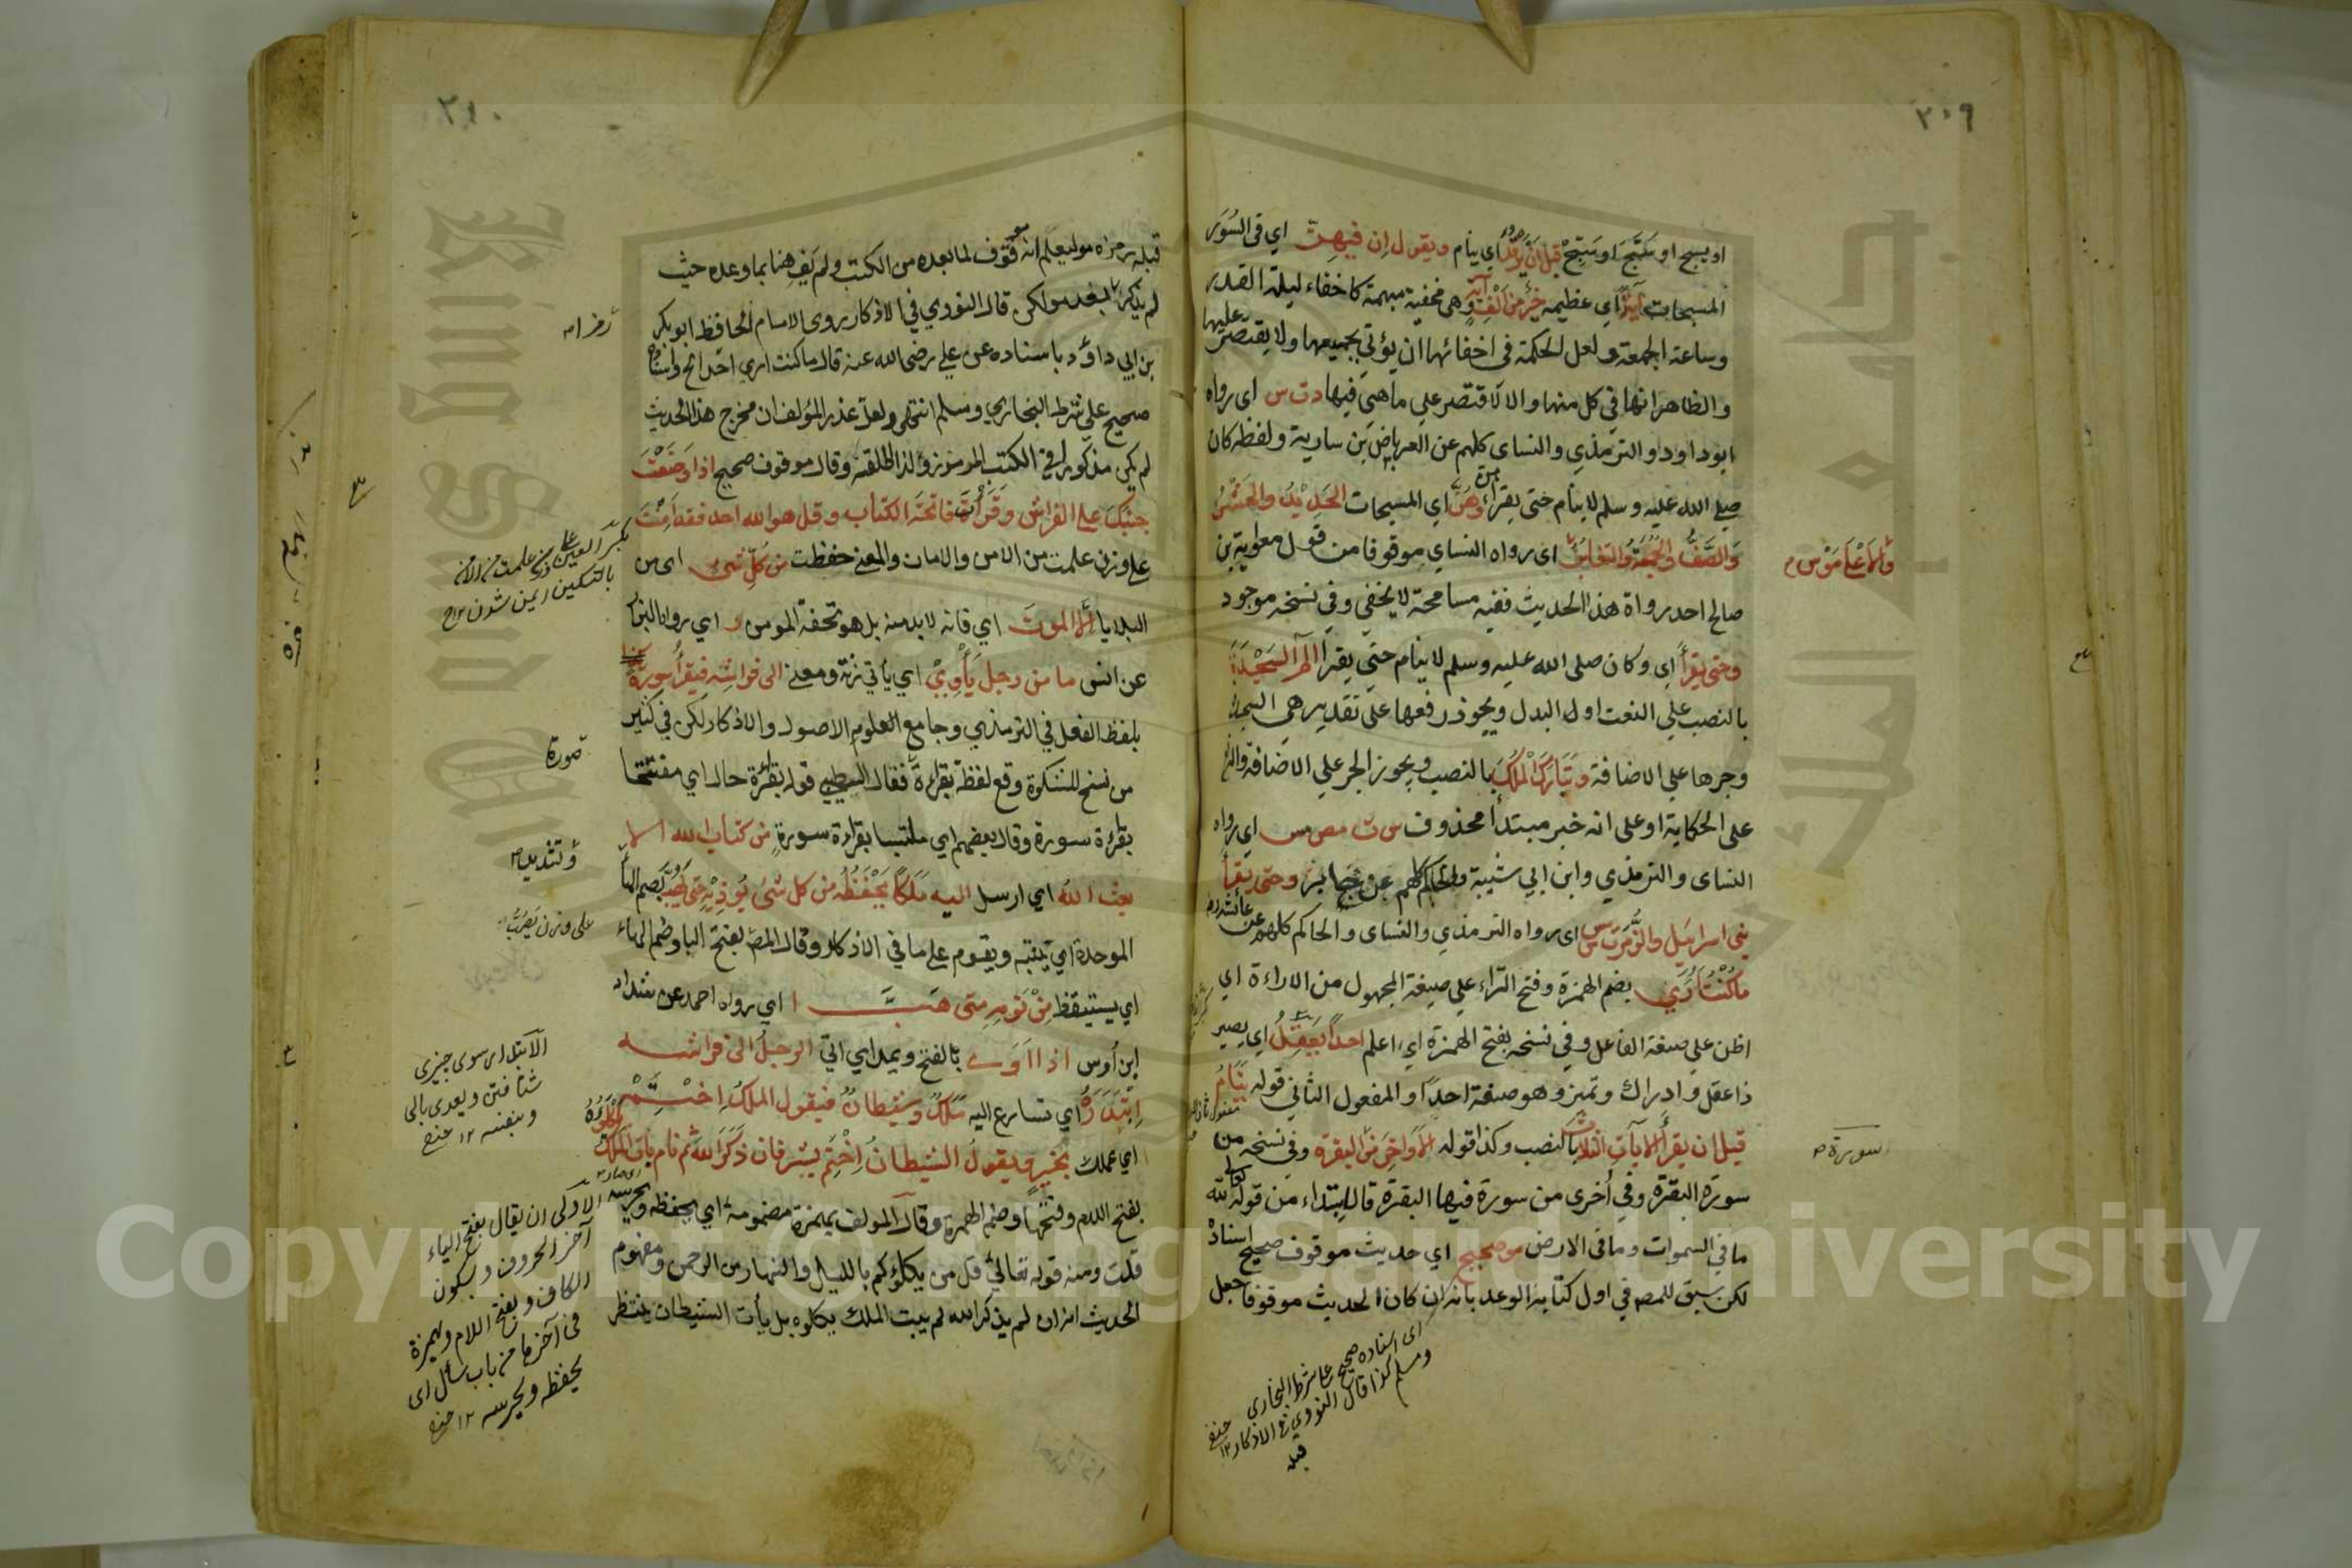 ٣٠٩
او يسبح او سَبَّحَ او سَبِّحْ قبل ان يَرْقُدَ اي ينام ويقول اِن فيهِنّ اي في السُوَر
المسبحات آيةً اي عظيمه خَيْرٌ من اَلْفِ آية وهي مخفية مبهمة كاخفاء ليلة القدر
وساعة الجمعة ولعل الحكمة في اخفائها ان يؤتي بجميعها ولا يقتصر عليها
والظاهر انها في كل منها والا لاقتصر علي ماهي فيها دت س اي رواه
ابوداود والترمذي والنساي كلهم عن العرباض بن سارية ولفظه كان
صلي الله عليه وسلم لا ينام حتي يقراءهن اي المسبحات الحَدِيْدُ والحَشْرُ
وَالصَّفُّ والجُمُعَةُ والتغابُنُ اي رواه النساي موقوفا من قول معاوية بن
والاَعْلَى مَوْ س م
صالح احد رواة هذا الحديث ففيه مسامحة لا يخفي وفي نسخه موجود
وحتى يقرأ اي وكان صلى الله عليه وسلم لا ينام حتي يقرأ الم السَجْدَةَ
بالنصب علي النعت او البدل ويجوز رفعها علي تقدير هي السجدة
وجرها علي الاضافة وتَبَارَكَ الْمُلْكُ بالنصب ويجوز الجر علي الاضافة والرفع
على الحكاية او على انه خبر مبتدأ محذوف س ت مص مس اي رواه
النساى والترمذي وابن ابي شيبة والحاكم كلهم عن جابر وحتى يقرأ
بني اسرايل والزُّمَرَ ت س مس اي رواه الترمذي والنساى والحاكم كلهم عن عائشة رض
ما كُنْتُ اُرَي بضم الهمزة وفتح الرّاء علي صيغة المجهول من الاراءة اي
اظن علي صيغة الفاعل وفي نسخه بفتح الهمزة اي اعلم احدًا يَعْقِلُ اي يصير
ذا عقل وادراك وتميز وهو صفة احدًا والمفعول الثاني قوله يَنَامُ
قبل ان يقرأ الآيات الثلاث بالنصب وكذا قوله الاَواخِرَ مِنَ البقرة وفي نسخه من
سورة م
سورة البقرة وفي اُخرى من سورة فيها البقرة فالابتداء من قوله لله
ما في السموات وما في الارض مو صحيح اي حديث موقوف صحيح اسنادهْ
لكن سبق للمصـ في اول كتابه الوعد بانه ان كان الحديث موقوفا جعل
اى اسناده صحيح على شرط البخاري
ومسلم كذا قال النووي في الاذكار ١٢ حنفي
قبله
٣١٠
قبله رمزاه مو ليعلم انه موقوف لما بعده من الكتب ولم يَفِ هنا بما وعده حيث
لم يذكر بعد مو لكن قال النووي في الاذكار روى الامام الحافظ ابوبكر
رمزا م
بن ابي داوٗد باسناده عن علي رضي الله عنه قال ما كنت اري احدًا الخ واسناده
صحيح علي شرط البخاري ومسلم انتهى ولعل عذر المؤلف ان مخرج هذا الحديث
لم يكن مذكورا في الكتب المرموزة ولذا اطلقه وقال موقوف صحيح اذا وَضَعْتَ
جَنْبَكَ علي الفراش وَقَرَأْتَ فاتحَة الكتاب وقل هو الله احد فقد اَمِنْتَ
على وزن علمت من الامن والامان والمعنے حفظت من كُلِّ شئ اى من
البلايا اِلّا الموتَ اي فانه لا بد منه بل هو تحفة المومن ر اي رواه البزار
عن انس ما من رجل يَأْوِيْ اي يأتي زنة ومعنے الى فراشه فيقرأ سورةً
بلفظ الفعل في الترمذي وجامع العلوم الاصول والاذكار لكن في كثير
من نسخ المشكوة وقع لفظة بقراءة فقال الطيبي قوله بقراءة حال اي مفتتحا
بقراءة سورة وقال بعضهم اي ملتبسا بقراءة سورةٍ من كتاب الله الا
بعث اللهُ اي ارسل اليه مَلَكًا يَحْفَظُه من كل شئ يُوذِيْهِ حتى يَهُبَّ بضم الهاء
وتشديد م
الموحدة اي ينتبه ويقوم علي ما في الاذكار وقال المصـ بفتح اليا وضم الهاء
على وزن يَضُرُّبُ
اي يستيقظ مِنْ نَومِهِ متى هَبَّ ا اي رواه احمد عن شداد
ابن أوس اذا اَوَے بالفتح ويمد اي اتىٰ الرجلُ الىٰ فراشه
اِبْتَدَرَهُ اي تسارع اليه مَلَكٌ وَشَيْطانٌ فيقول المَلَكُ اِخْتِمْ
اي عملك بخيرٍ ويقولُ الشيطانُ اِخْتِمْ بشر فان ذَكَرَ اللهَ ثم نام باتَ الملك يَكْلَؤُهُ
بفتح اللام وفتحها وضم الهمزة وقال المولف بهمزة مضمومة اي يحفظه ويحرسه
قلت ومنه قوله تعاليٰ قل من يكلؤكم بالليل والنهار من الرحمن ومفهوم
الحديث انه ان لم يذكر الله لم يبت الملك يكلوه بل يأت الشيطان ينتظر
بكسر العين على وزن علمت من الامن
بالتسكين ايمن شدن صراح
الابتدار سوى چيزى
شتافتن ويعدى بالى
وبنفسه ١٢ حنفي
الاولى ان يقال بفتح الياء
آخر الحروف وبسكون
الكاف وبفتح اللام وبهمزة
في آخرها من باب سأل اى
يحفظه ويحرسه ١٢ حنفي
King Saud University
Copyright © King Saud University